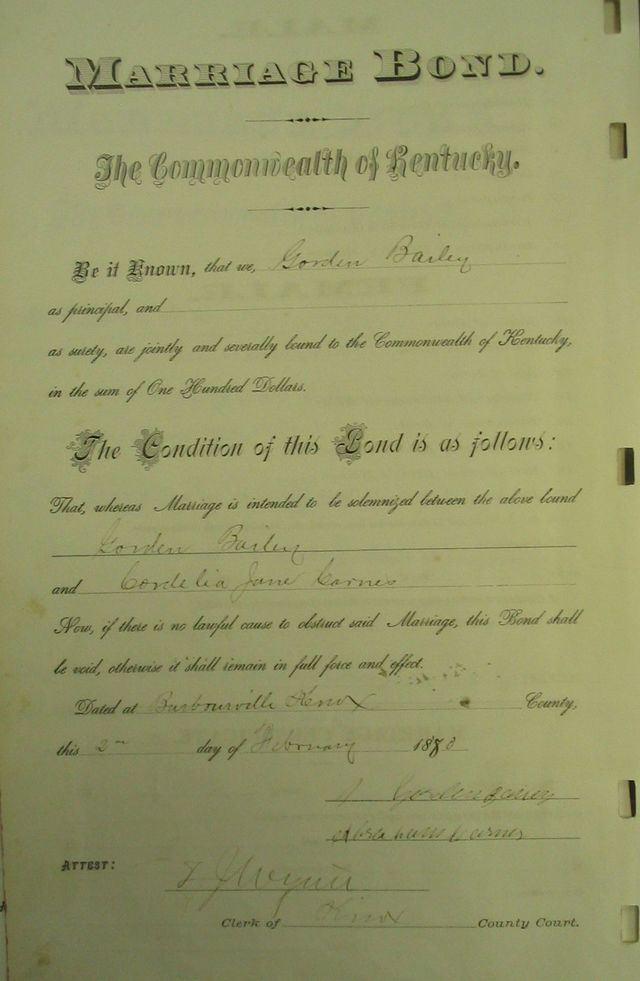 MARRIAGE BOND.
The Commonwealth of Kentucky.
Be it Known, that we, Gorden Bailey
as principal, and
as surety, are jointly and severally bound to the Commonwealth of Kentucky,
in the sum of One Hundred Dollars.
The Condition of this Bond is as follows:
That, whereas Marriage is intended to be solemnized between the above bound
Gorden Bailey
and Cordelia Jane Carnes
Now, if there is no lawful cause to obstruct said Marriage, this Bond shall
be void, otherwise it shall remain in full force and effect.
Dated at Barbourville Knox County,
this 2nd day of February 188
Gorden Bailey
Abraham Carnes
ATTEST:
Clerk of Knox County Court.